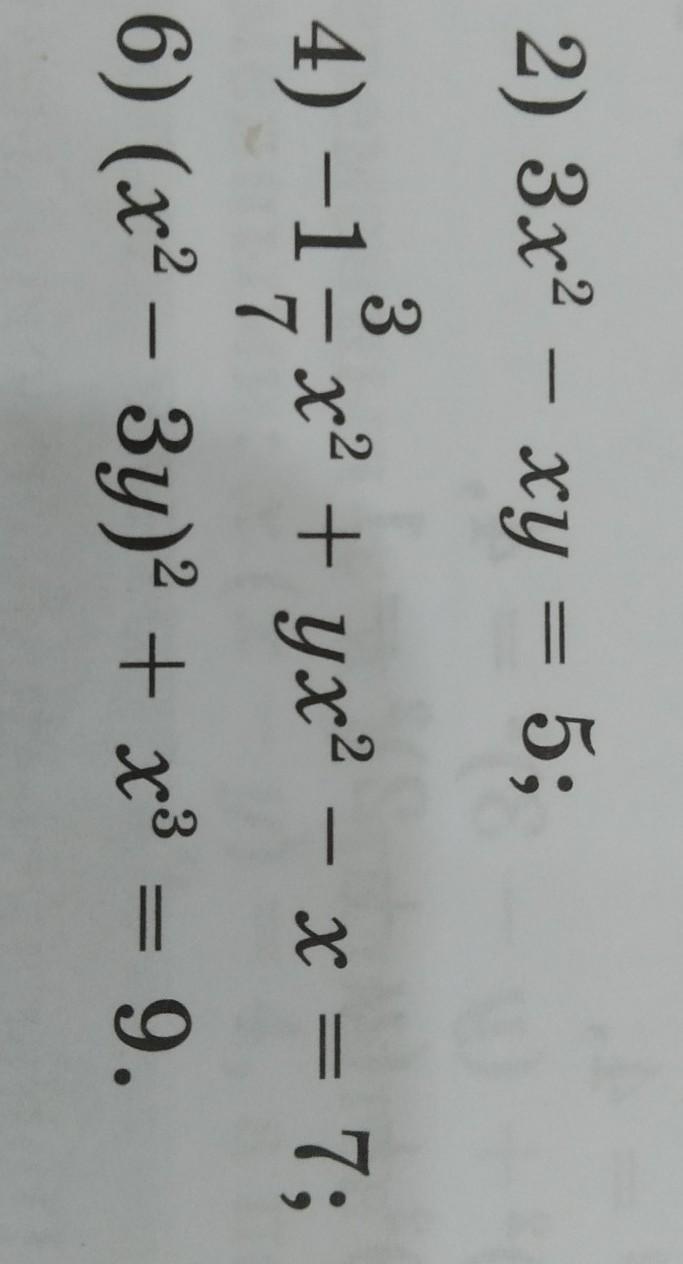 2) 3x² − xy = 5;
4) −1 3/7 x² + yx² − x = 7;
6) (x² − 3y)² + x³ = 9.